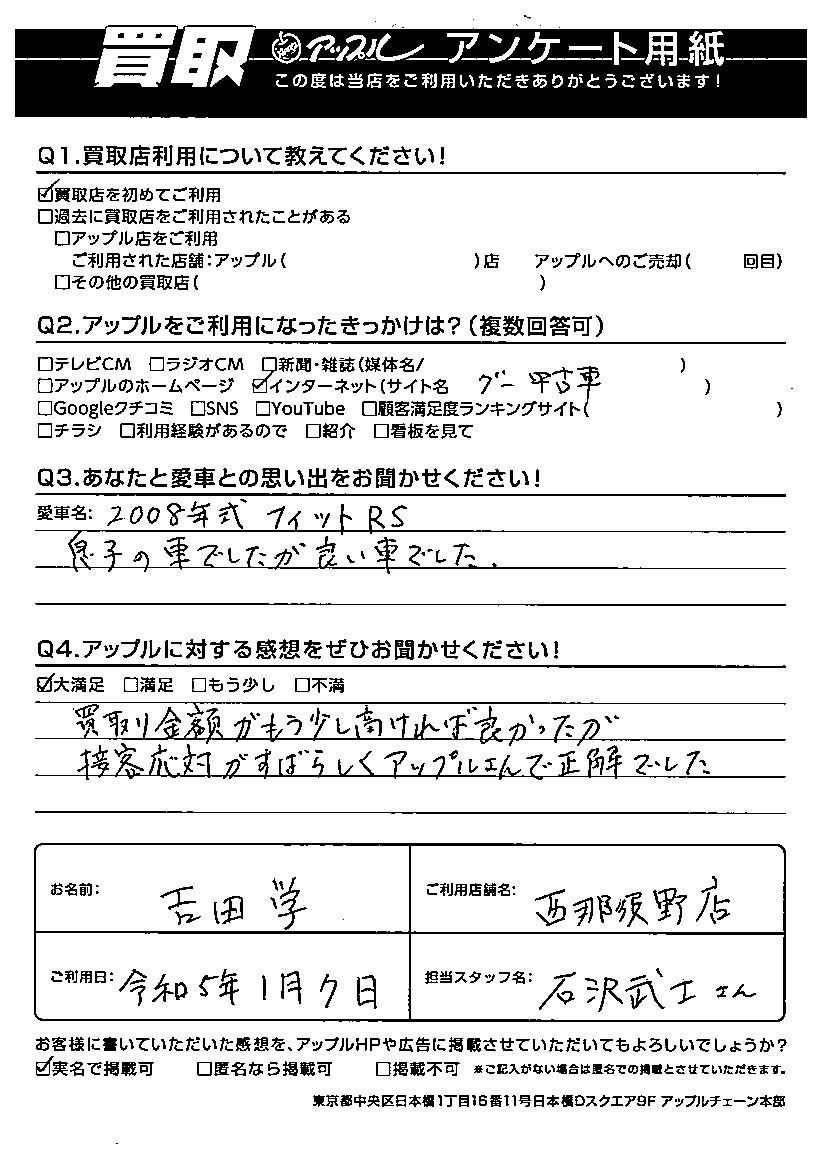 買取 アップル アンケート用紙
この度は当店をご利用いただきありがとうございます!
Q1.買取店利用について教えてください!
☑買取店を初めてご利用
□過去に買取店をご利用されたことがある
□アップル店をご利用
ご利用された店舗:アップル( )店 アップルへのご売却( 回目)
□その他の買取店( )
Q2.アップルをご利用になったきっかけは?(複数回答可)
□テレビCM □ラジオCM □新聞・雑誌(媒体名/ )
□アップルのホームページ ☑インターネット(サイト名 グー中古車 )
□Googleクチコミ □SNS □YouTube □顧客満足度ランキングサイト( )
□チラシ □利用経験があるので □紹介 □看板を見て
Q3.あなたと愛車との思い出をお聞かせください!
愛車名: 2008年式 フィットRS
息子の車でしたが良い車でした.
Q4.アップルに対する感想をぜひお聞かせください!
☑大満足 □満足 □もう少し □不満
買取り金額がもう少し高ければ良かったが
接客応対がすばらしくアップルさんで正解でした
お名前: 吉田 学 ご利用店舗名: 西那須野店
ご利用日: 令和5年1月7日 担当スタッフ名: 石沢武士さん
お客様に書いていただいた感想を、アップルHPや広告に掲載させていただいてもよろしいでしょうか?
☑実名で掲載可 □匿名なら掲載可 □掲載不可 ※ご記入がない場合は匿名での掲載とさせていただきます。
東京都中央区日本橋1丁目16番11号日本橋Dスクエア9F アップルチェーン本部